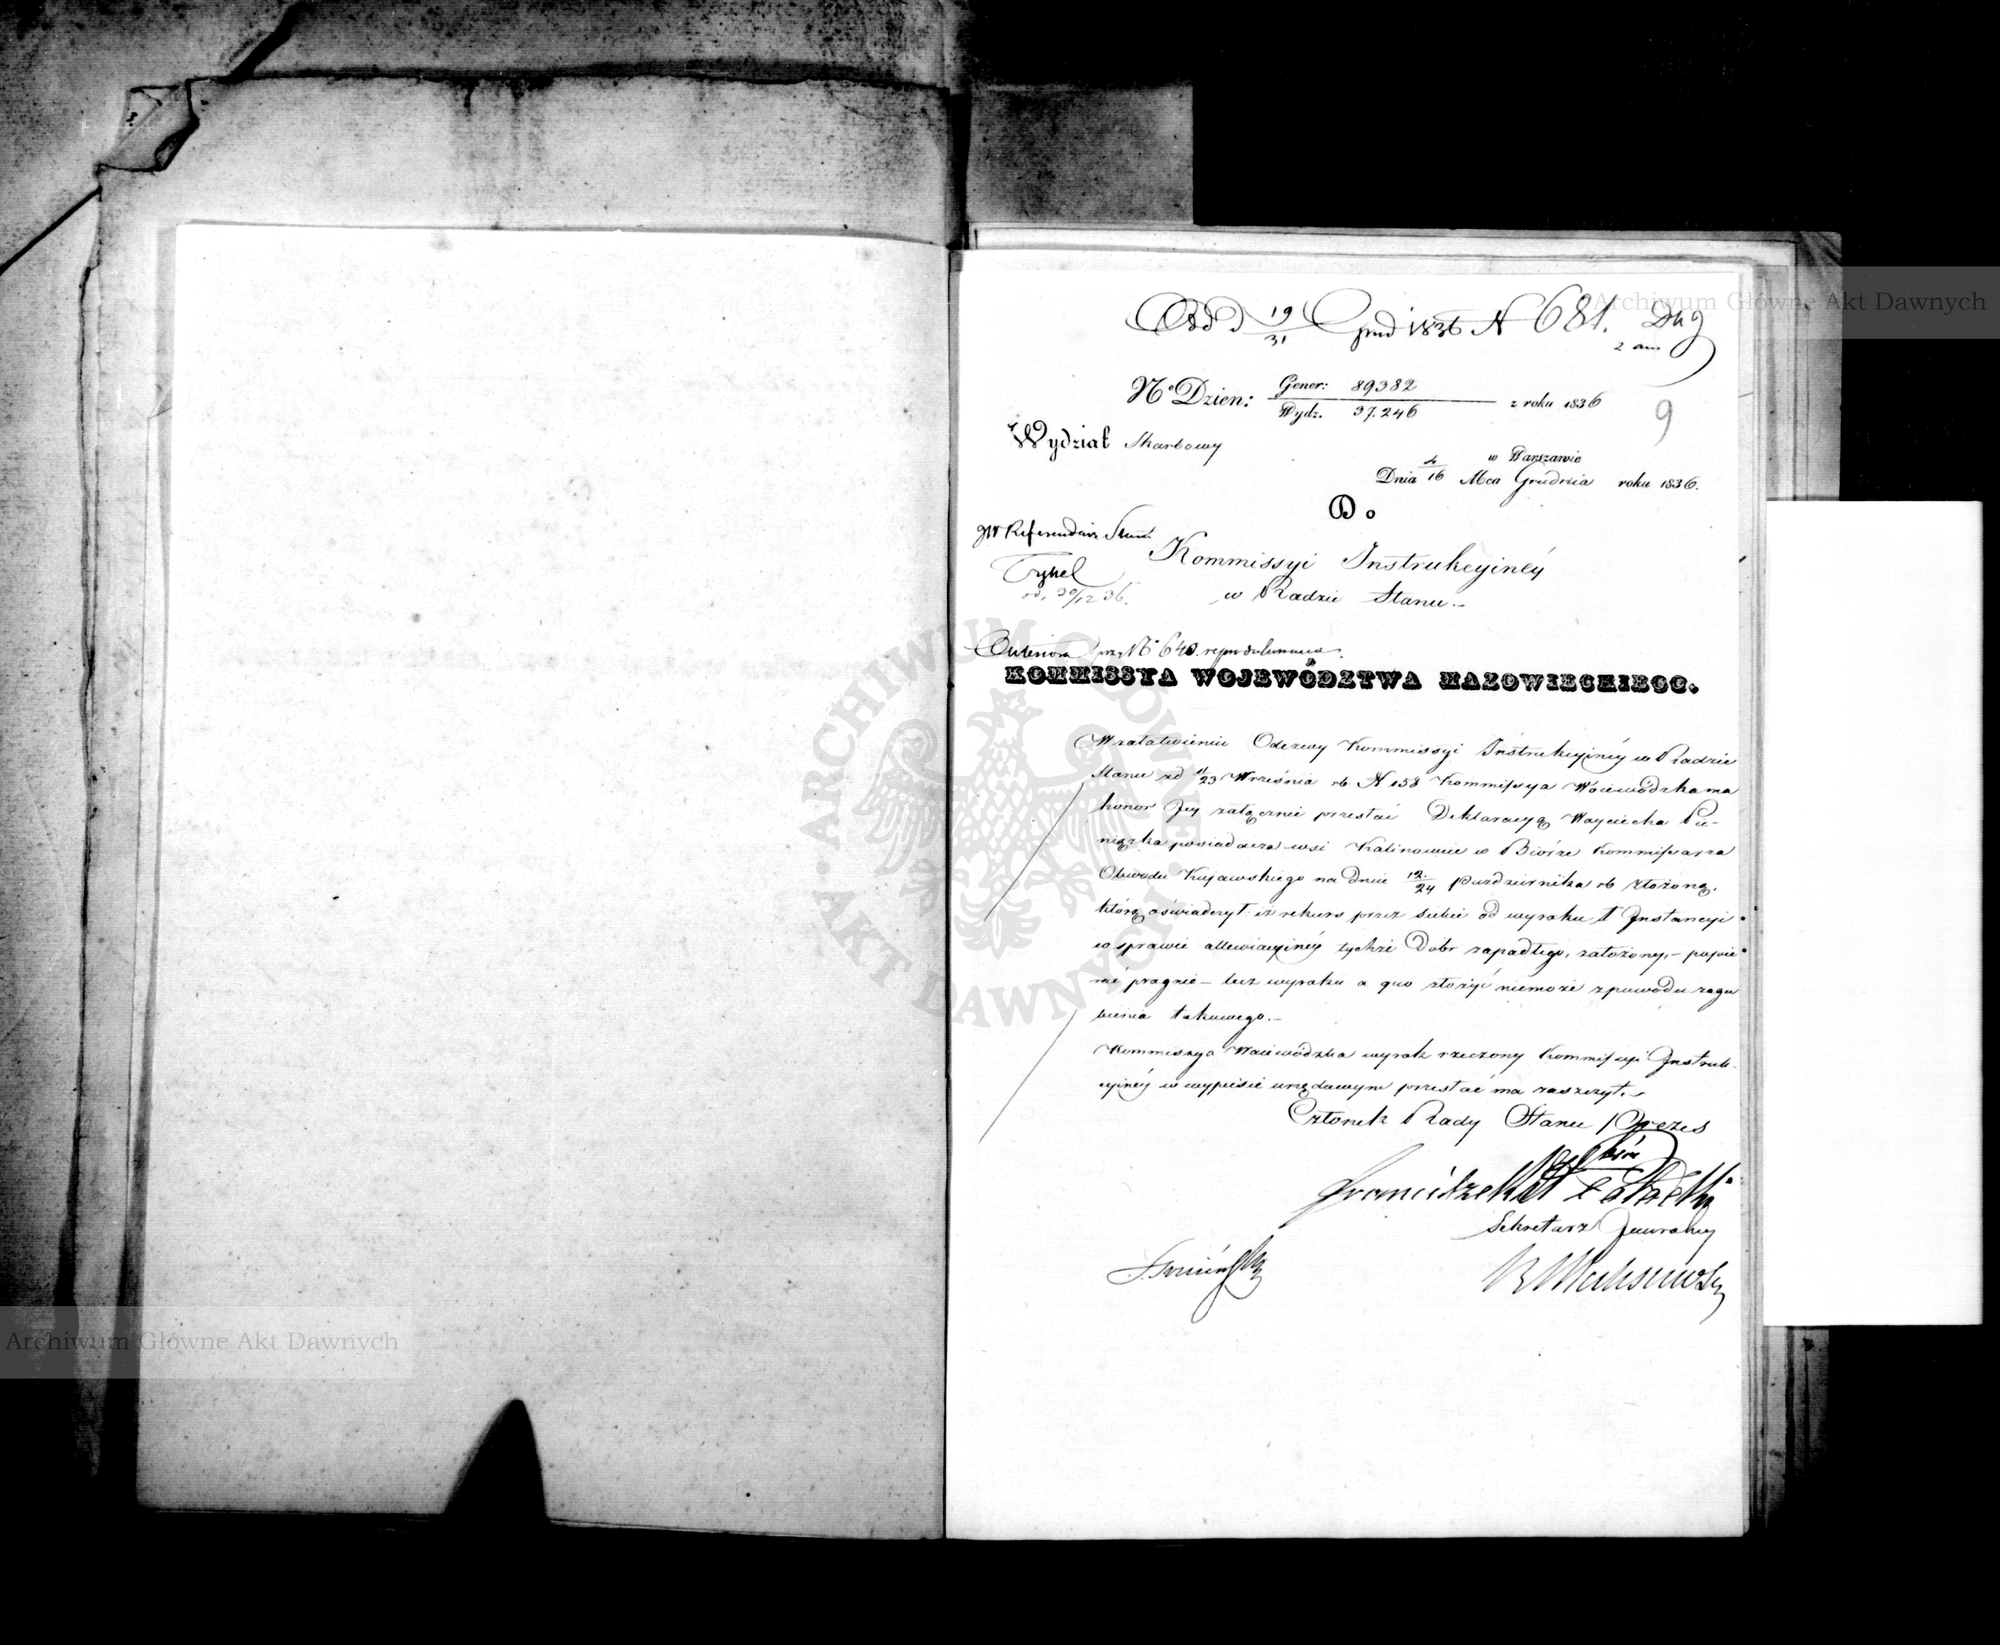 Odd d 19/31 Grud 1836 N 681.
9
No Dzien: Gener: 89382
Wydz. 37.246 z roku 1836
Wydział Skarbowy
w Warszawie
Dnia 4/16 Mca Grudnia roku 1836.
Do
JW Referendarz Stanu
Kommissyi Instrukcyinéy
w Radzie Stanu.-
30/12 36.
Anteriora przy No 640.
KOMMISSYA WOJEWÓDZTWA MAZOWIECKIEGO.
W załatwieniu Odezwy Kommissyi Instrukcyinéy w Radzie
Stanu zd 11/23 Września rb N 158 Kommissya Woiewódzka ma
honor Jey załącznie przesłać Deklaracyą Woyciecha Pie-
niązka posiadacza wsi Kalinowiec w Biórze Kommissarza
Obwodu Kujawskiego na dniu 12/24 Pazdziernika rb złożoną,
którą oświadczył: iż rekurs przez siebie od wyroku 1 Instancyi
w sprawie allewiacyinéy tychże Dóbr zapadłego, założony,- popie
rać pragnie - lecz wyroku a quo złożyć niemoże z powodu zagu
bienia takowego.-
Kommissya Woiewódzka wyrok rzeczony Kommissyi Instruk-
cyinéy w wypisie urzędowym przesłać ma zaszczyt.-
Członek Rady Stanu Prezes
Franciszek
Sekretarz Jeneralny
Archiwum Główne Akt Dawnych
Archiwum Główne Akt Dawnych
ARCHIWUM GŁÓWNE AKT DAWNYCH